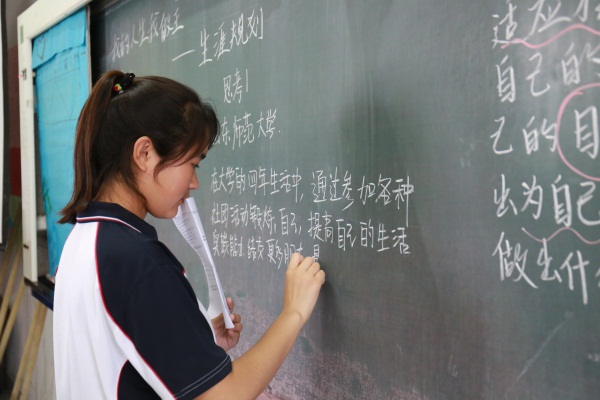 我的人生我做主
—生涯规划
思考1
山东师范大学.
在大学的四年生活中,通过参加各种
社团活动锻炼自己,提高自己的生活
结交更多
适应
自己的
己的目
出为自己
做出什